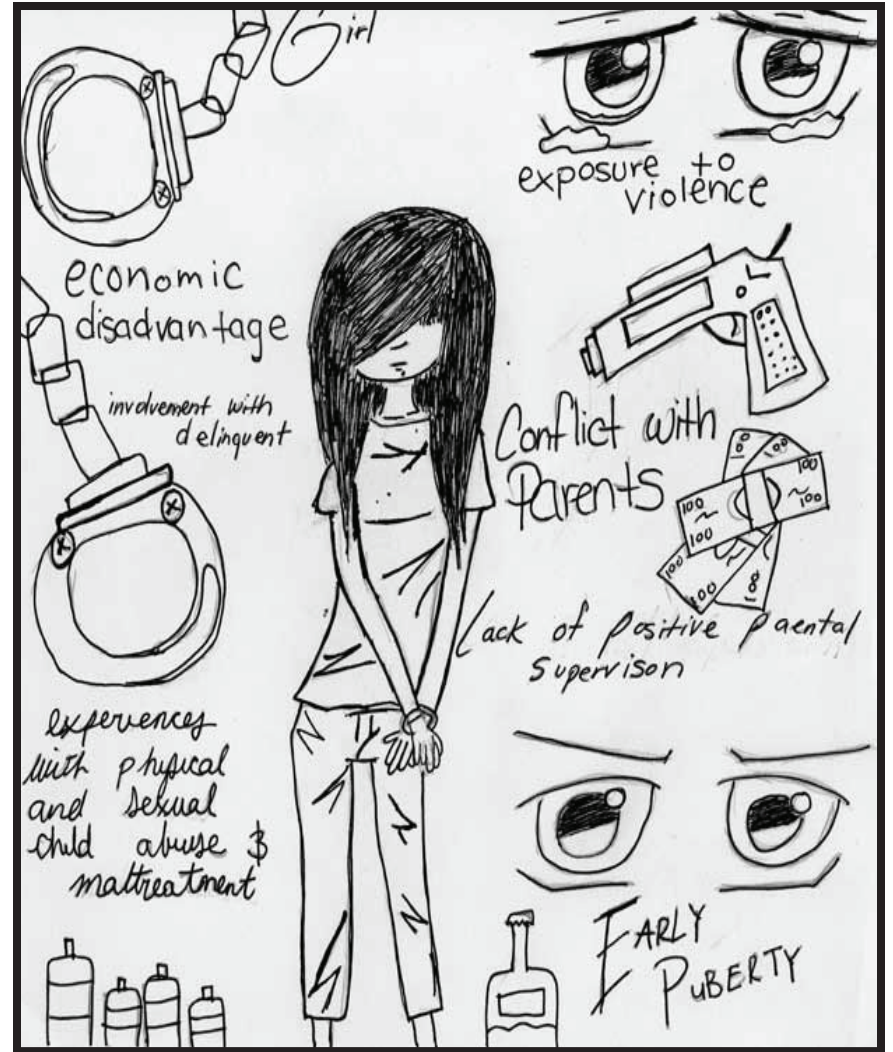 Girl
exposure to
violence
economic
disadvantage
involvement with
delinquent
Conflict with
Parents
100
100
100
100
100
100
100
Lack of positive paental
supervison
experiences
with physical
and sexual
child abuse &
maltreatment
EARLY
PUBERTY